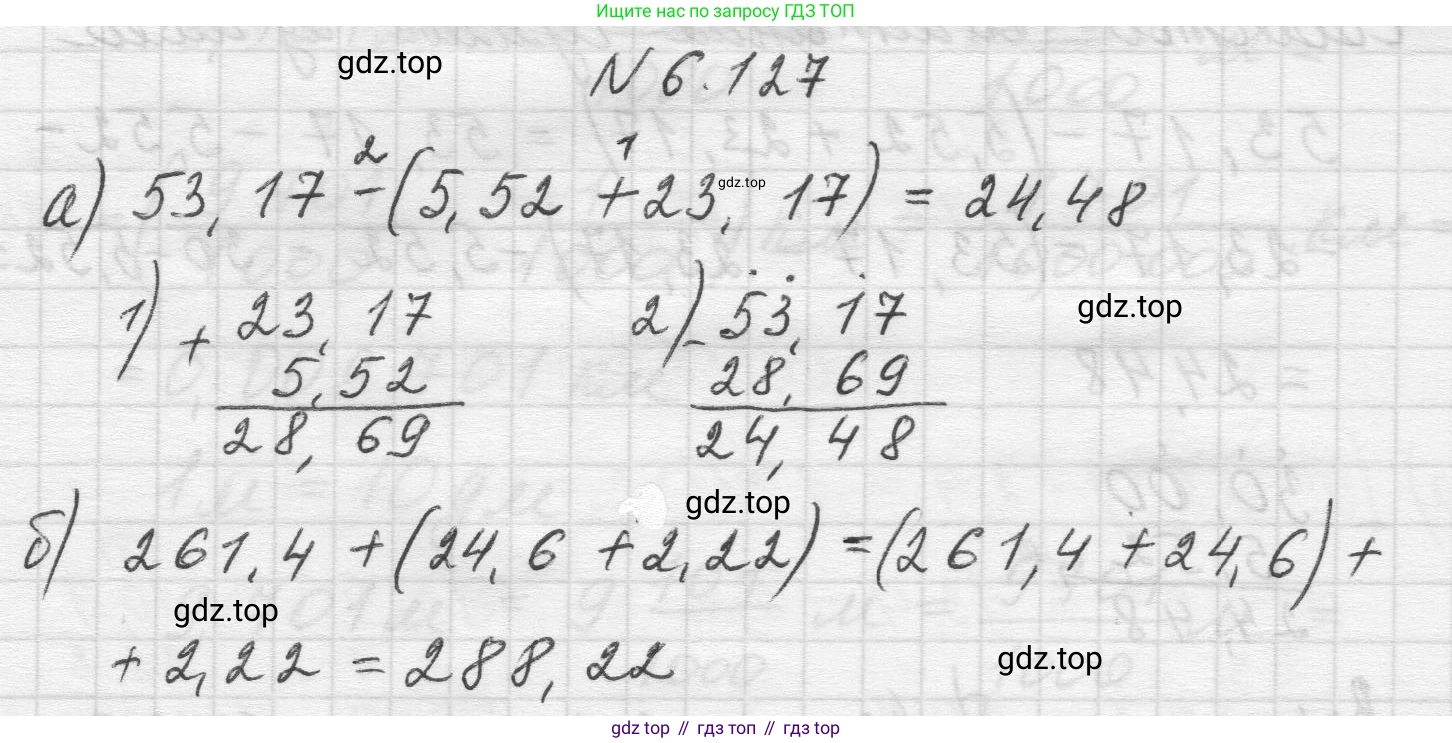 Ищите нас по запросу ГДЗ ТОП
gdz.top
N 6.127
2 1
а) 53,17 - (5,52 + 23,17) = 24,48
gdz.top
1) + 23,17
5,52
28,69
2) - 53,17
28,69
24,48
gdz.top
gdz.top
б) 261,4 + (24,6 + 2,22) = (261,4 + 24,6) +
gdz.top
+ 2,22 = 288,22
gdz.top
gdz top // гдз топ // gdz top